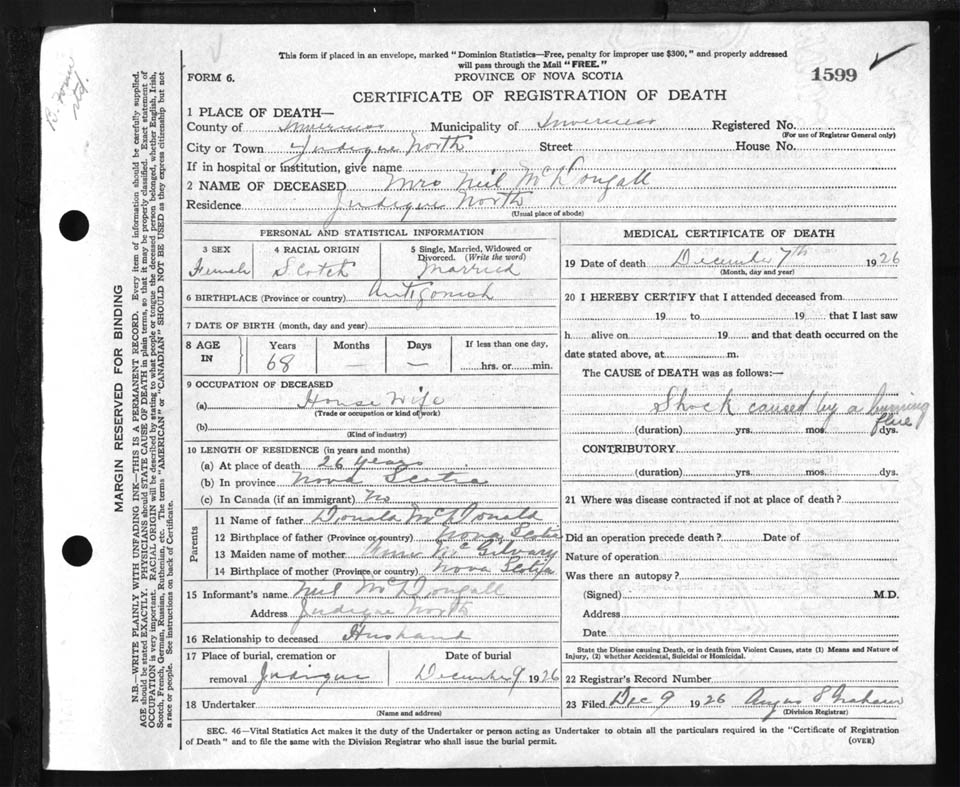 This form if placed in an envelope, marked "Dominion Statistics—Free, penalty for improper use $300," and properly addressed
will pass through the Mail "FREE."
FORM 6.
PROVINCE OF NOVA SCOTIA
1599
CERTIFICATE OF REGISTRATION OF DEATH
1 PLACE OF DEATH—
County of Inverness Municipality of Inverness Registered No.
(For use of Registrar General only)
City or Town Judique North Street House No.
If in hospital or institution, give name
2 NAME OF DECEASED Mrs Neil McDougall
Residence Judique North
(Usual place of abode)
PERSONAL AND STATISTICAL INFORMATION
3 SEX
Female
4 RACIAL ORIGIN
Scotch
5 Single, Married, Widowed or
Divorced. (Write the word)
Married
6 BIRTHPLACE (Province or country) Antigonish
7 DATE OF BIRTH (month, day and year)
8 AGE
IN
Years
68
Months
—
Days
—
If less than one day,
hrs. or min.
9 OCCUPATION OF DECEASED
(a) House Wife
(Trade or occupation or kind of work)
(b)
(Kind of industry)
10 LENGTH OF RESIDENCE (in years and months)
(a) At place of death 26 years
(b) In province Nova Scotia
(c) In Canada (if an immigrant) No
Parents
11 Name of father Donald McDonald
12 Birthplace of father (Province or country) Nova Scotia
13 Maiden name of mother McGilvary
14 Birthplace of mother (Province or country) Nova Scotia
15 Informant's name Neil McDougall
Address Judique North
16 Relationship to deceased Husband
17 Place of burial, cremation or
removal Judique
Date of burial
December 9 1926
18 Undertaker
(Name and address)
MEDICAL CERTIFICATE OF DEATH
19 Date of death December 7th 1926
(Month, day and year)
20 I HEREBY CERTIFY that I attended deceased from
19 to 19 that I last saw
h alive on 19 and that death occurred on the
date stated above, at m.
The CAUSE of DEATH was as follows:—
Shock caused by a burning
flue
(duration) yrs. mos. dys.
CONTRIBUTORY
(duration) yrs. mos. dys.
21 Where was disease contracted if not at place of death?
Did an operation precede death? Date of
Nature of operation
Was there an autopsy?
(Signed) M.D.
Address
Date
State the Disease causing Death, or in death from Violent Causes, state (1) Means and Nature of
Injury, (2) whether Accidental, Suicidal or Homicidal.
22 Registrar's Record Number
23 Filed Dec 9 1926 Angus S Graham
(Division Registrar)
SEC. 46—Vital Statistics Act makes it the duty of the Undertaker or person acting as Undertaker to obtain all the particulars required in the "Certificate of Registration
of Death" and to file the same with the Division Registrar who shall issue the burial permit.
(OVER)
MARGIN RESERVED FOR BINDING
N.B.—WRITE PLAINLY WITH UNFADING INK—THIS IS A PERMANENT RECORD. Every item of information should be carefully supplied.
AGE should be stated EXACTLY. PHYSICIANS should STATE CAUSE OF DEATH in plain terms, so that it may be properly classified. Exact statement of
OCCUPATION is very important. RACIAL ORIGIN will be described by stating to what people or tongue the deceased person belonged, whether English, Irish,
Scotch, French, German, Russian, Ruthenian, etc. The terms "AMERICAN" or "CANADIAN" SHOULD NOT BE USED as they express citizenship but not
a race or people. See instructions on back of Certificate.